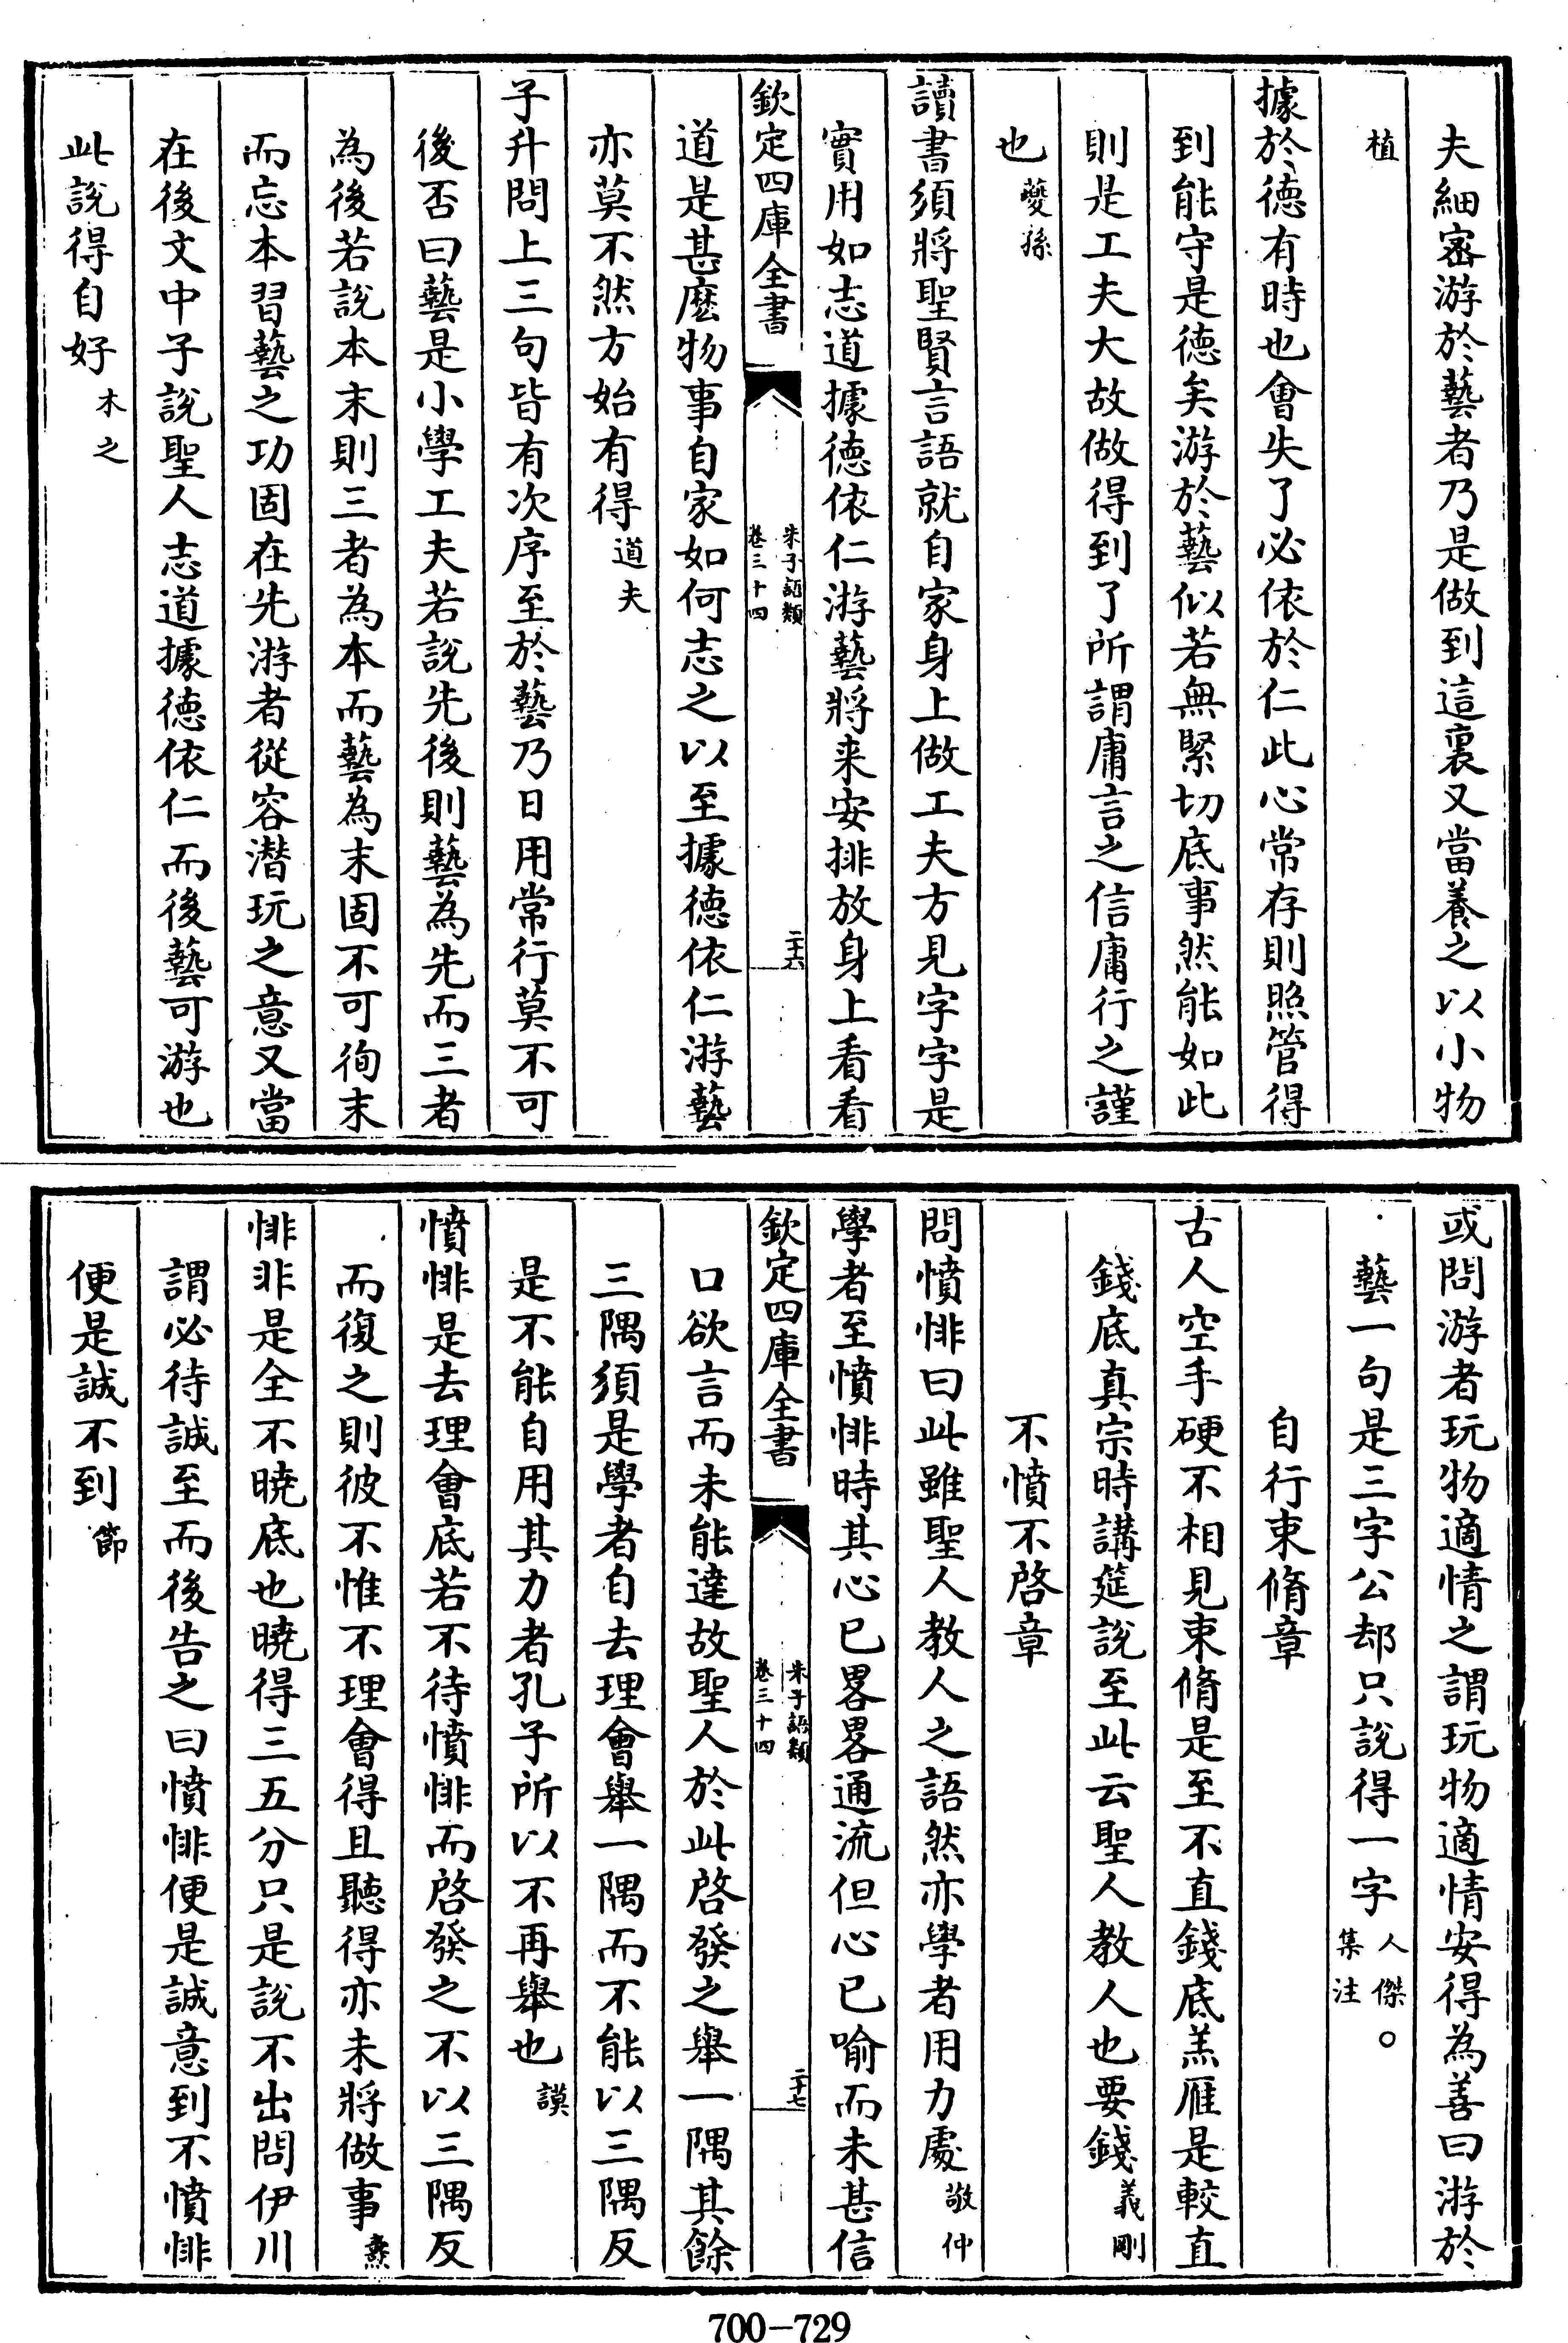 夫細密游於藝者乃是做到這裏又當養之以小物
植
據於德有時也會失了必依於仁此心常存則照管得
到能守是德矣游於藝似若無緊切底事然能如此
則是工夫大故做得到了所謂庸言之信庸行之謹
也夔孫
讀書須將聖賢言語就自家身上做工夫方見字字是
實用如志道據德依仁游藝將来安排放身上看看
欽定四庫全書
朱子語類
卷三十四
二十六
道是甚麽物事自家如何志之以至據德依仁游藝
亦莫不然方始有得道夫
子升問上三句皆有次序至於藝乃日用常行莫不可
後否曰藝是小學工夫若說先後則藝為先而三者
為後若說本末則三者為本而藝為末固不可徇末
而忘本習藝之功固在先游者從容潛玩之意又當
在後文中子說聖人志道據德依仁而後藝可游也
此說得自好木之
或問游者玩物適情之謂玩物適情安得為善曰游於
藝一句是三字公却只說得一字人傑○
集注
自行束脩章
古人空手硬不相見束脩是至不直錢底羔雁是較直
錢底真宗時講筵說至此云聖人教人也要錢義剛
不憤不啓章
問憤悱曰此雖聖人教人之語然亦學者用力處敬仲
學者至憤悱時其心已畧畧通流但心已喻而未甚信
欽定四庫全書
朱子語類
卷三十四
二十七
口欲言而未能達故聖人於此啓發之舉一隅其餘
三隅須是學者自去理會舉一隅而不能以三隅反
是不能自用其力者孔子所以不再舉也謨
憤悱是去理會底若不待憤悱而啓發之不以三隅反
而復之則彼不惟不理會得且聽得亦未將做事燾
悱非是全不曉底也曉得三五分只是說不出問伊川
謂必待誠至而後告之曰憤悱便是誠意到不憤悱
便是誠不到節
700-729